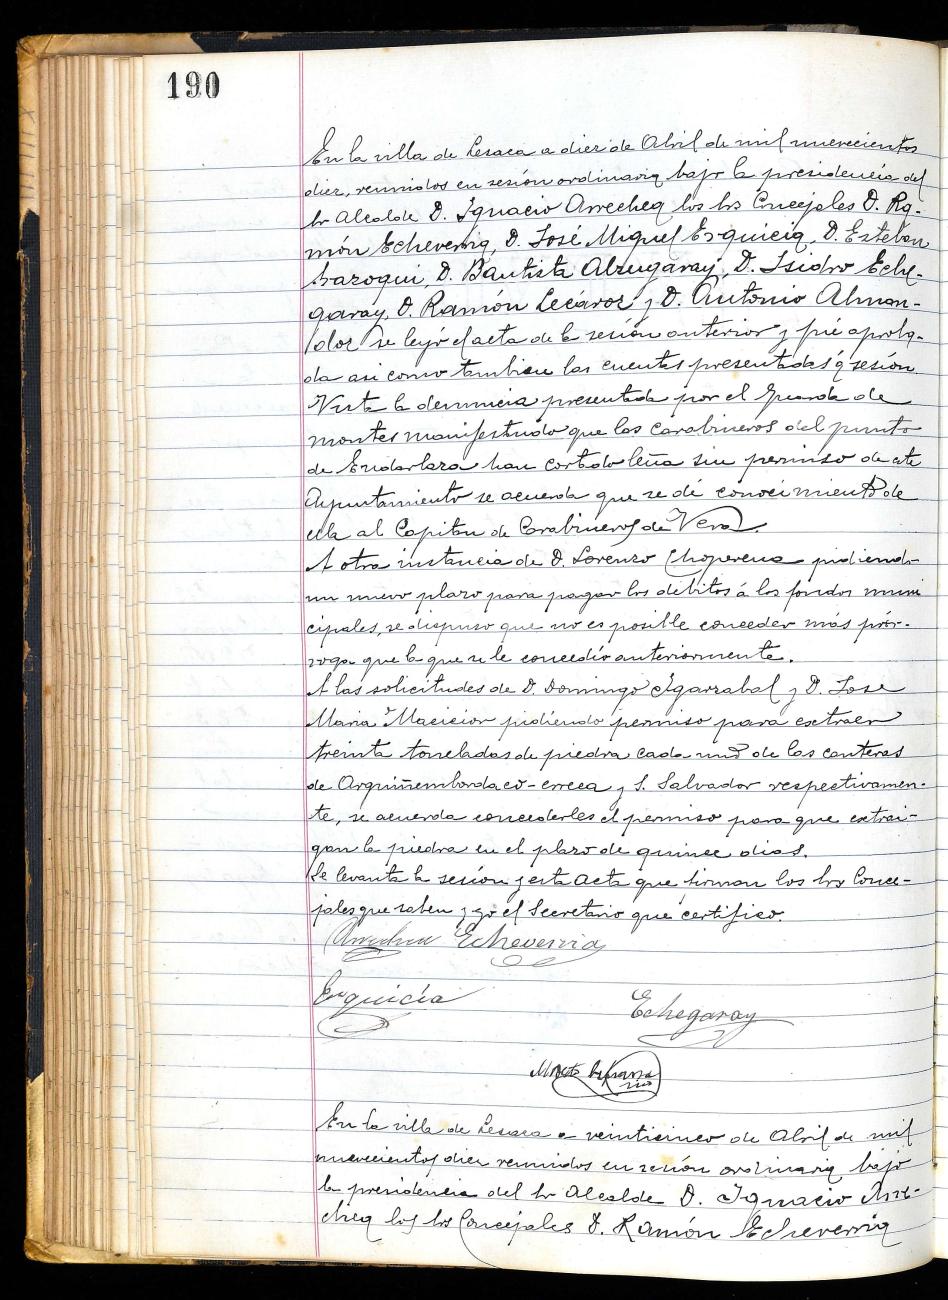 190
En la villa de Lesaca a diez de Abril de mil nuevecientos
diez, reunidos en sesión ordinaria bajo la presidencia del
Sr Alcalde D. Ignacio Arrechea los Srs Concejales D. Ra-
món Echeverria, D. José Miguel Erquicia, D. Esteban
Saroqui, D. Bautista Alzugaray, D. Isidro Eche-
garay, D. Ramón Lecároz y D. Antonio Alman-
doz se leyó el acta de la sesión anterior y fué aproba-
da asi como tambien las cuentas presentadas á sesión.
Vista la denuncia presentada por el Guarda de
montes manifestando que los carabineros del punto
de Endarlaza han cortado leña sin permiso de este
Ayuntamiento se acuerda que se dé conocimiento de
ella al Capitan de Carabineros de Vera.
A otra instancia de D. Lorenzo Choperena pidiendo
un nuevo plazo para pagar los debitos á los fondos muni
cipales, se dispuso que no es posible conceder más pror-
roga que la que se le concedió anteriormente.
A las solicitudes de D. Domingo Igarzabal y D. Jose
Maria Macicior pidiendo permiso para extraer
treinta toneladas de piedra cada uno de las canteras
de Arguiñembordaco-erreca y S. Salvador respectivamen-
te, se acuerda concederles el permiso para que extrai-
gan la piedra en el plazo de quince dias.
Se levanta la sesión y esta acta que firman los Srs Conce-
jales que saben y yo el Secretario que certifico.
Arrechea Echeverria
Erquicia
Echegaray
En la villa de Lesaca a veinticinco de Abril de mil
nuevecientos diez reunidos en sesión ordinaria bajo
la presidencia del Sr Alcalde D. Ignacio Arre-
chea los Srs Concejales D. Ramón Echeverria